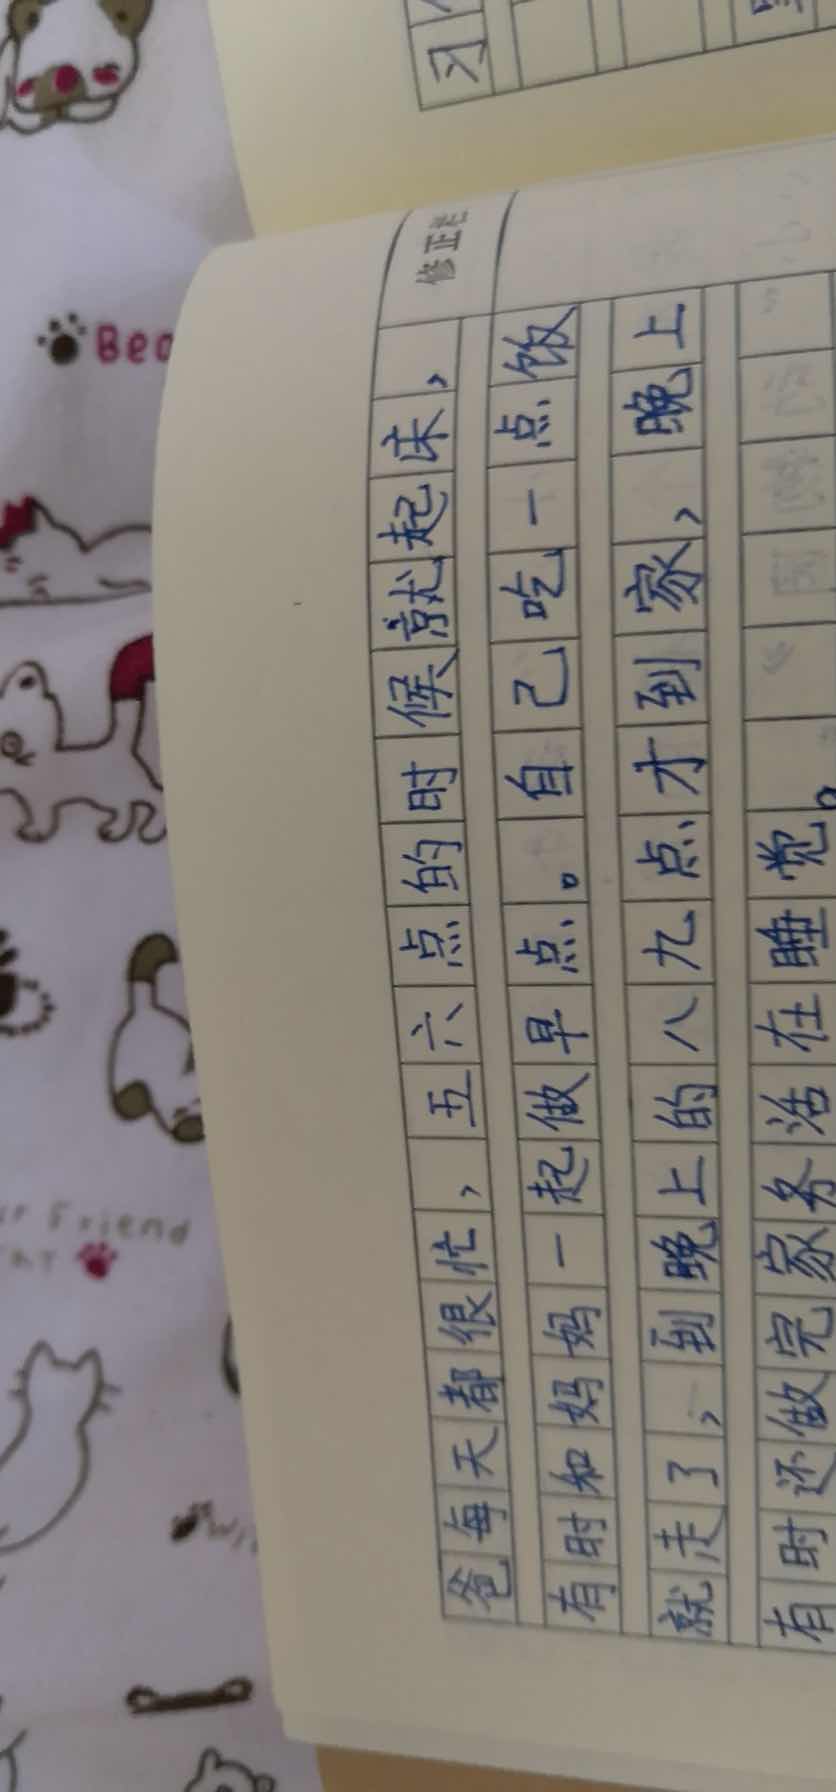 习
修正栏
爸每天都很忙，五六点的时候就起床，
有时和妈妈一起做早点。自己吃一点饭
就走了，到晚上的八九点才到家，晚上
有时还做完家务活在睡觉。
Friend